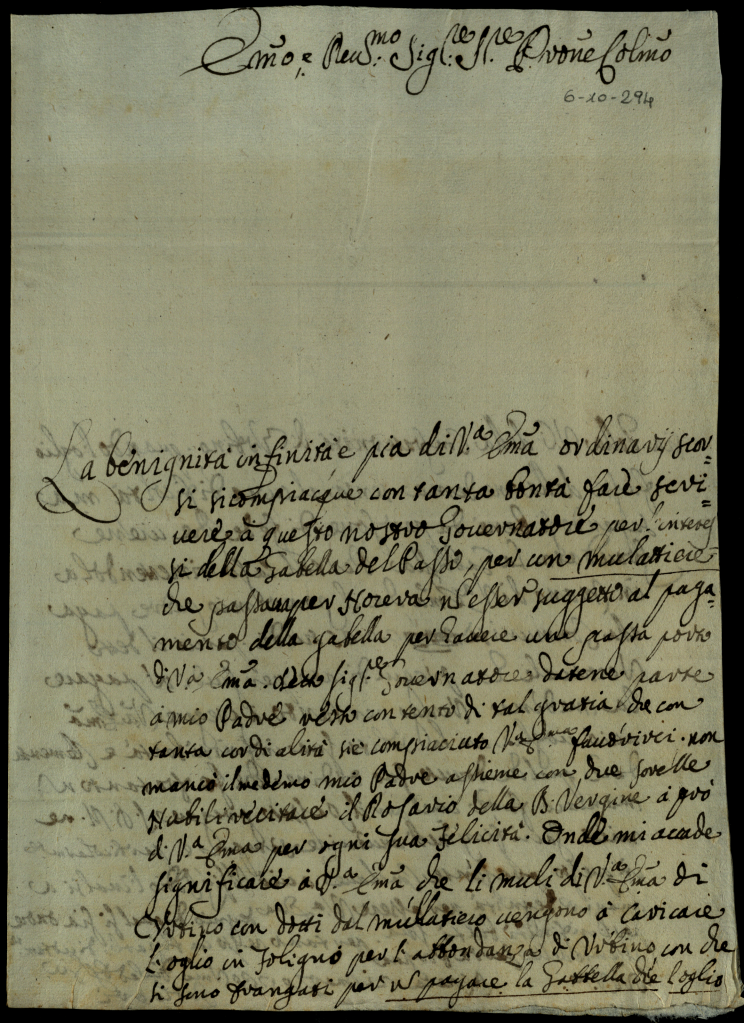 Emõ, e Reu.mo Sig.re S.re P.rone Colmõ
6-10-294
La benignità infinita, e pia di V.a Emã ordinarij scor=
si si compiacque con tanta bontà fare scri=
uere à questo nostro Gouernatore per l'interes
si della Gabella del Passo, per un mulattiere
che passaua per Nocera nõ esser suggetto al paga=
mento della gabella per hauere una passa porto
di V.a Emã. detto Sig.re Gouernatore datene parte
à mio Padre restò contento di tal gratia che con
tanta cordialità si è compiaciuto V.a Em.a fauorirci. non
mancò il medemo mio Padre assieme con due sorelle
Nubili recitare il Rosario della B. Vergine à prò
di V.a Emã per ogni sua felicità. Onde mi accade
significare à V.a Emã che li muli di V.a Emã di
Vrbino con dotti dal mullatiero uengono à caricare
l'oglio in Foligno per l'abbondanza di Vrbino con che
si sono per nõ pagare la Gabbella che l'oglio